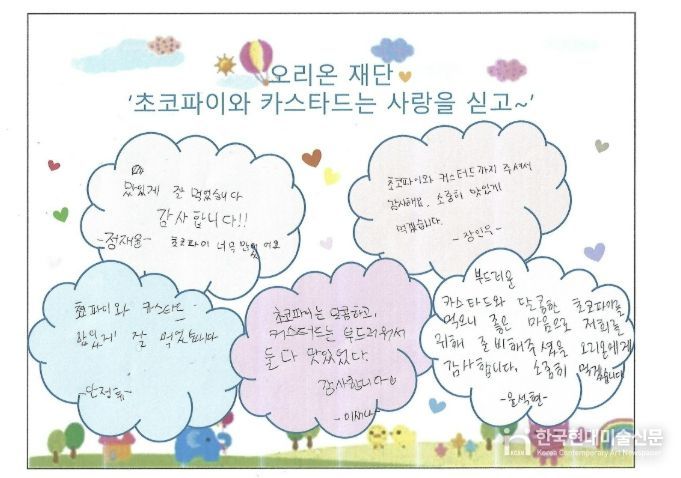 오리온 재단
'초코파이와 카스타드는 사랑을 싣고~'
맛있게 잘 먹었습니다
감사합니다!!
-정재율- 초코파이 너무 맛있어요
초코파이와 커스터드까지 주셔서
감사해요. 소중히 맛있게
먹겠습니다.
-장인우-
초코파이와 카스타드
맛있게 잘 먹었습니다
초코파이는 달콤하고,
커스터드는 부드러워서
둘 다 맛있었다.
감사합니다
부드러운
카스타드와 달콤한 초코파이를
먹으니 좋은 마음으로 저희를
위해 준비해주셨을 오리온에게
감사합니다. 소중히 먹겠습니다
-윤석현-
한국현대미술신문
Korea Contemporary Art Newspaper